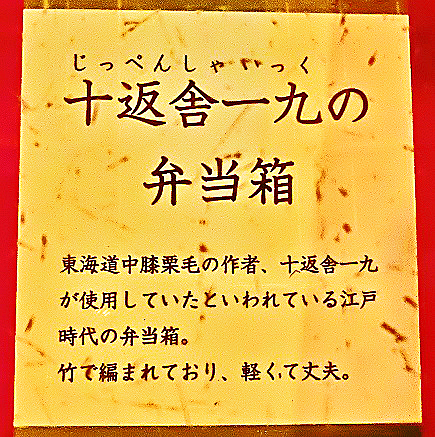 じっぺんしゃいっく
十返舎一九の
弁当箱
東海道中膝栗毛の作者、十返舎一九
が使用していたといわれている江戸
時代の弁当箱。
竹で編まれており、軽くて丈夫。